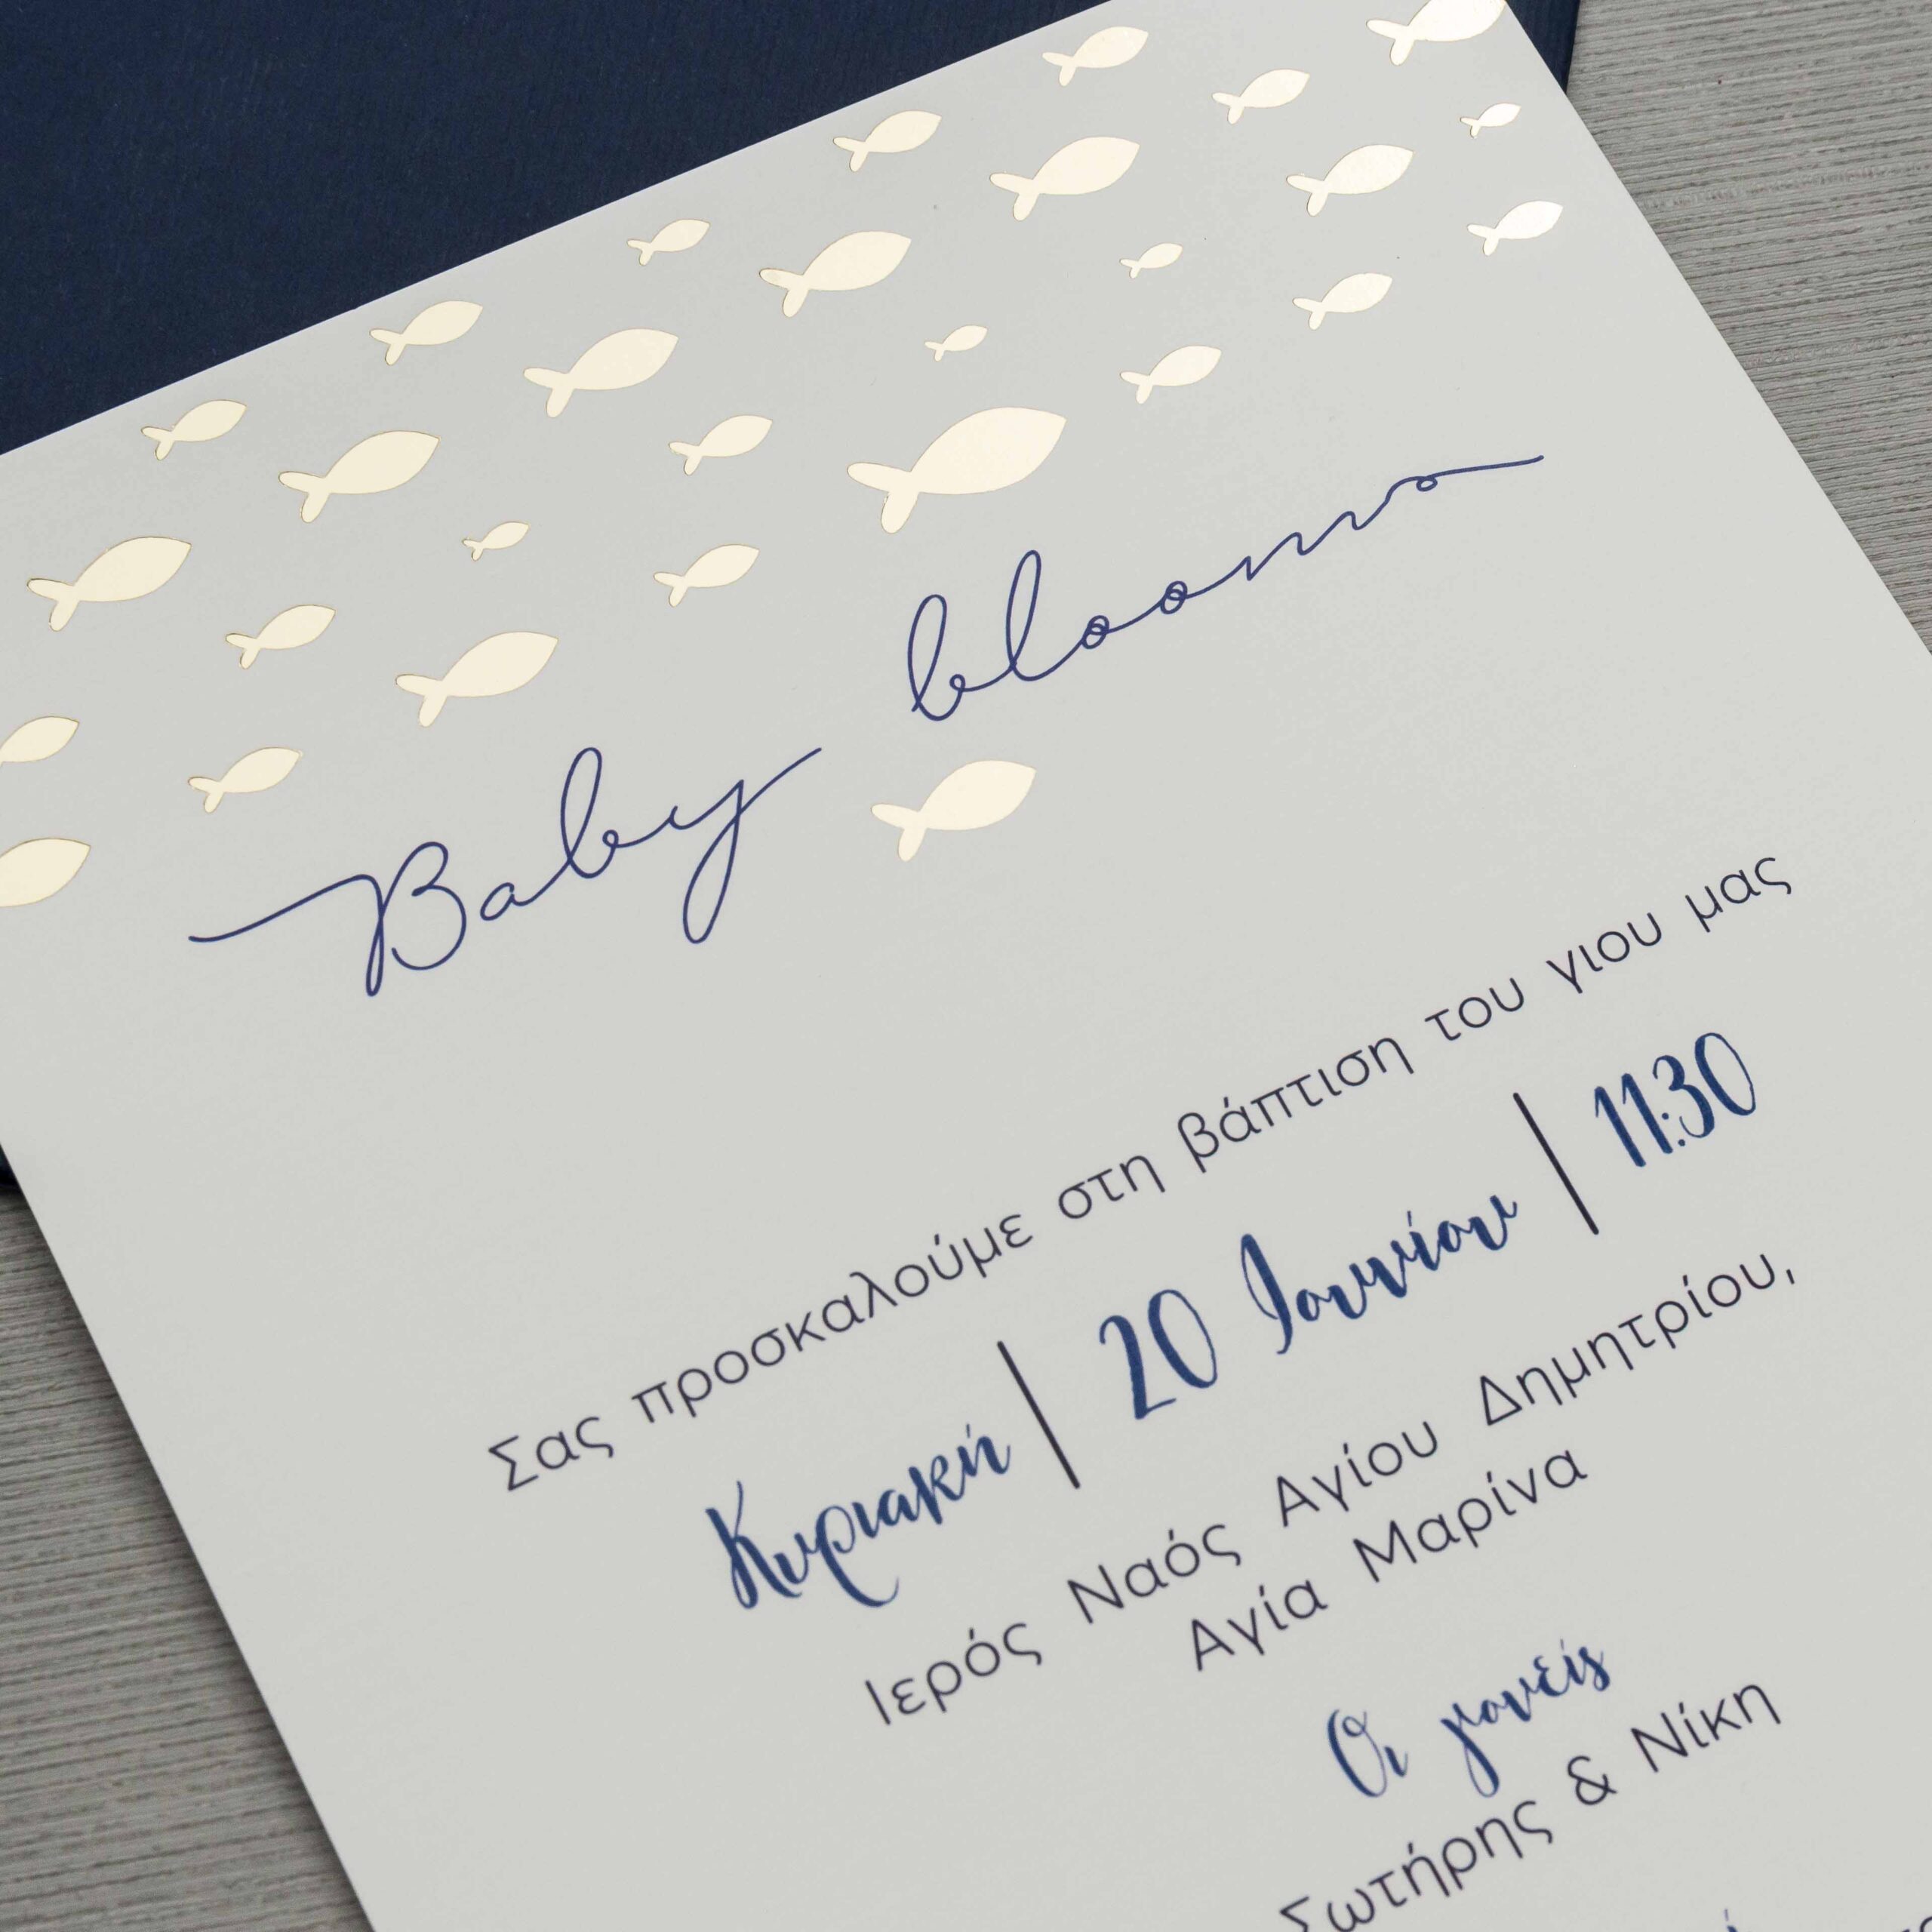 Baby blooms
Σας προσκαλούμε στη βάπτιση του γιου μας
Κυριακή | 20 Ιουνίου | 11:30
Ιερός Ναός Αγίου Δημητρίου,
Αγία Μαρίνα
Οι γονείς
Σωτήρης & Νίκη